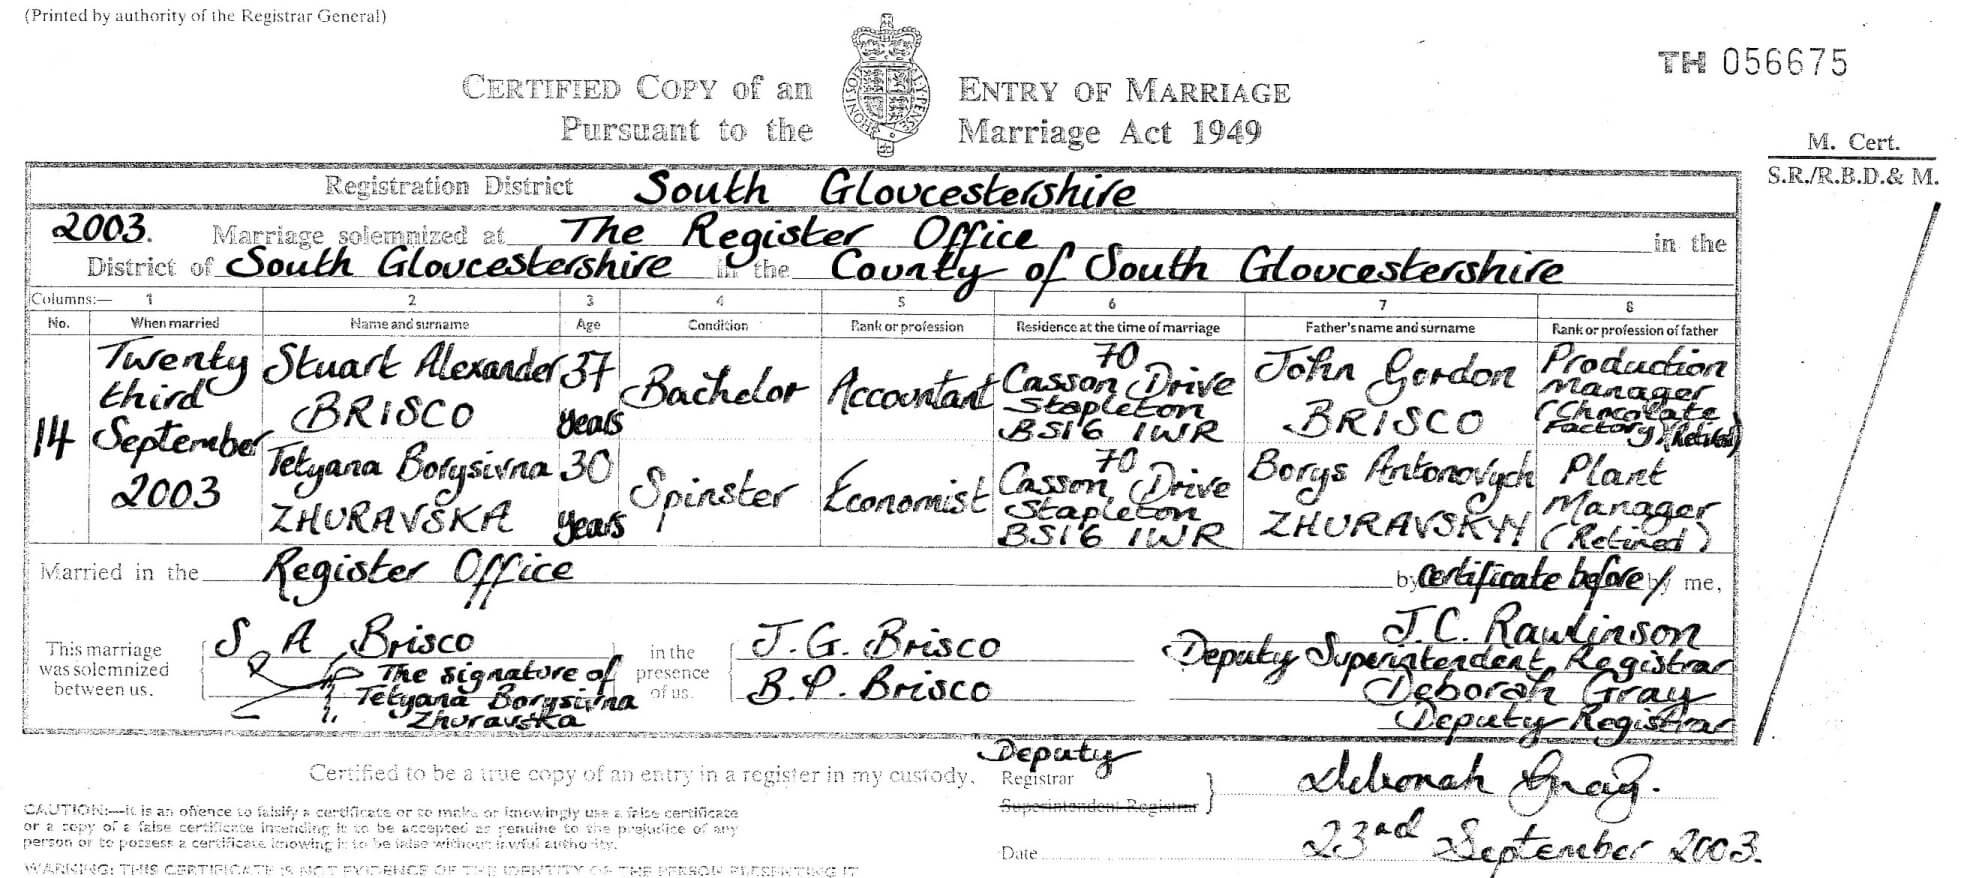 (Printed by authority of the Registrar General)
TH 056675
CERTIFIED COPY of an ENTRY OF MARRIAGE
Pursuant to the Marriage Act 1949
M. Cert.
S.R./R.B.D.& M.
Registration District South Gloucestershire
2003. Marriage solemnized at The Register Office in the
District of South Gloucestershire in the County of South Gloucestershire
Columns:— 1 2 3 4 5 6 7 8
No. When married Name and surname Age Condition Rank or profession Residence at the time of marriage Father's name and surname Rank or profession of father
14
Twenty
third
September
2003
Stuart Alexander
BRISCO
37
years
Bachelor
Accountant
70
Casson Drive
Stapleton
BS16 1WR
John Gordon
BRISCO
Production
Manager
(Chocolate
Factory)(Retired)
Tetyana Borysivna
ZHURAVSKA
30
years
Spinster
Economist
70
Casson Drive
Stapleton
BS16 1WR
Borys Antonovych
ZHURAVSKYY
Plant
Manager
(Retired)
Married in the Register Office by certificate before by me,
This marriage
was solemnized
between us.
S A Brisco
The signature of
Tetyana Borysivna
Zhuravska
in the
presence
of us.
J.G. Brisco
B.P. Brisco
J.C. Rawlinson
Deputy Superintendent Registrar
Deborah Gray
Deputy Registrar
Certified to be a true copy of an entry in a register in my custody.
Deputy
Registrar
Superintendent Registrar
Deborah Gray.
Date 23rd September 2003.
CAUTION:—It is an offence to falsify a certificate or to make or knowingly use a false certificate
or a copy of a false certificate intending it to be accepted as genuine to the prejudice of any
person or to possess a certificate knowing it to be false without lawful authority.
WARNING: THIS CERTIFICATE IS NOT EVIDENCE OF THE IDENTITY OF THE PERSON PRESENTING IT